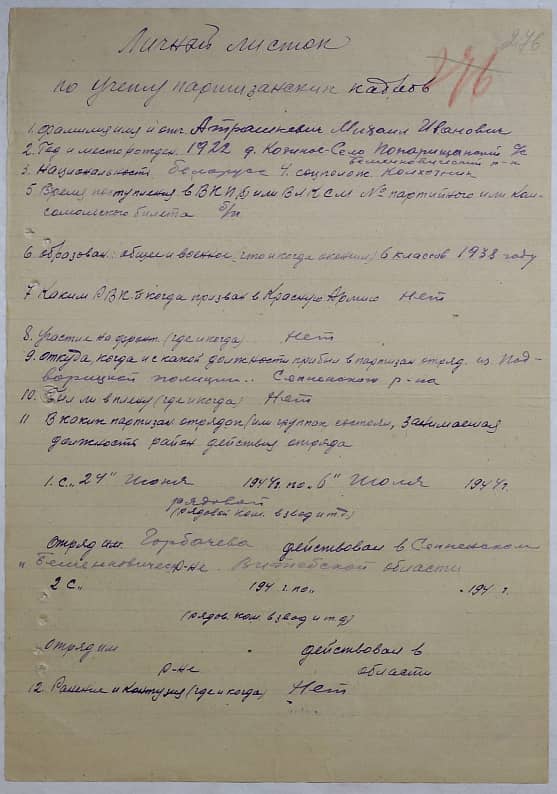 276
276
Личный листок
по учету партизанских кадров
1. Фамилия имя и отч. Атрашкевич Михаил Иванович
2. Год и место рожден. 1922 д. Козино-Село
Бешенковический р-н
3. Национальность белорус 4. соц. полож. Колхозник
5. Время поступления в ВКП(б) или ВЛКСМ № партийного или Ком-
сомольского билета б/п
6. образован: общее и военное (что и когда окончил) 6 классов 1938 году
7. Каким РВК и когда призван в Красную Армию Нет
8. Участие на фронт. (где и когда) Нет
9. откуда, когда и с какой должности прибыл в партизан отряд. из Под-
ворицкой полиции.. Сенненского р-на
10. Был ли в плену (где и когда) Нет
11 В каких партизан отрядах (или группах состояли, занимаемая
должность район действия отряда
1. с „24" Июня 1944г. по „6" Июля 1944г.
рядовой
(рядовой ком. взвод и т.д)
отряд им. Горбачева действовал в Сенненском
и Бешенковическ р-не Витебской области
2 с „ 194 г. по „ 194 г.
(рядов. ком. взвод и т.д)
отряд им действовал в
р-не области
12. Ранение и контузия (где и когда) Нет